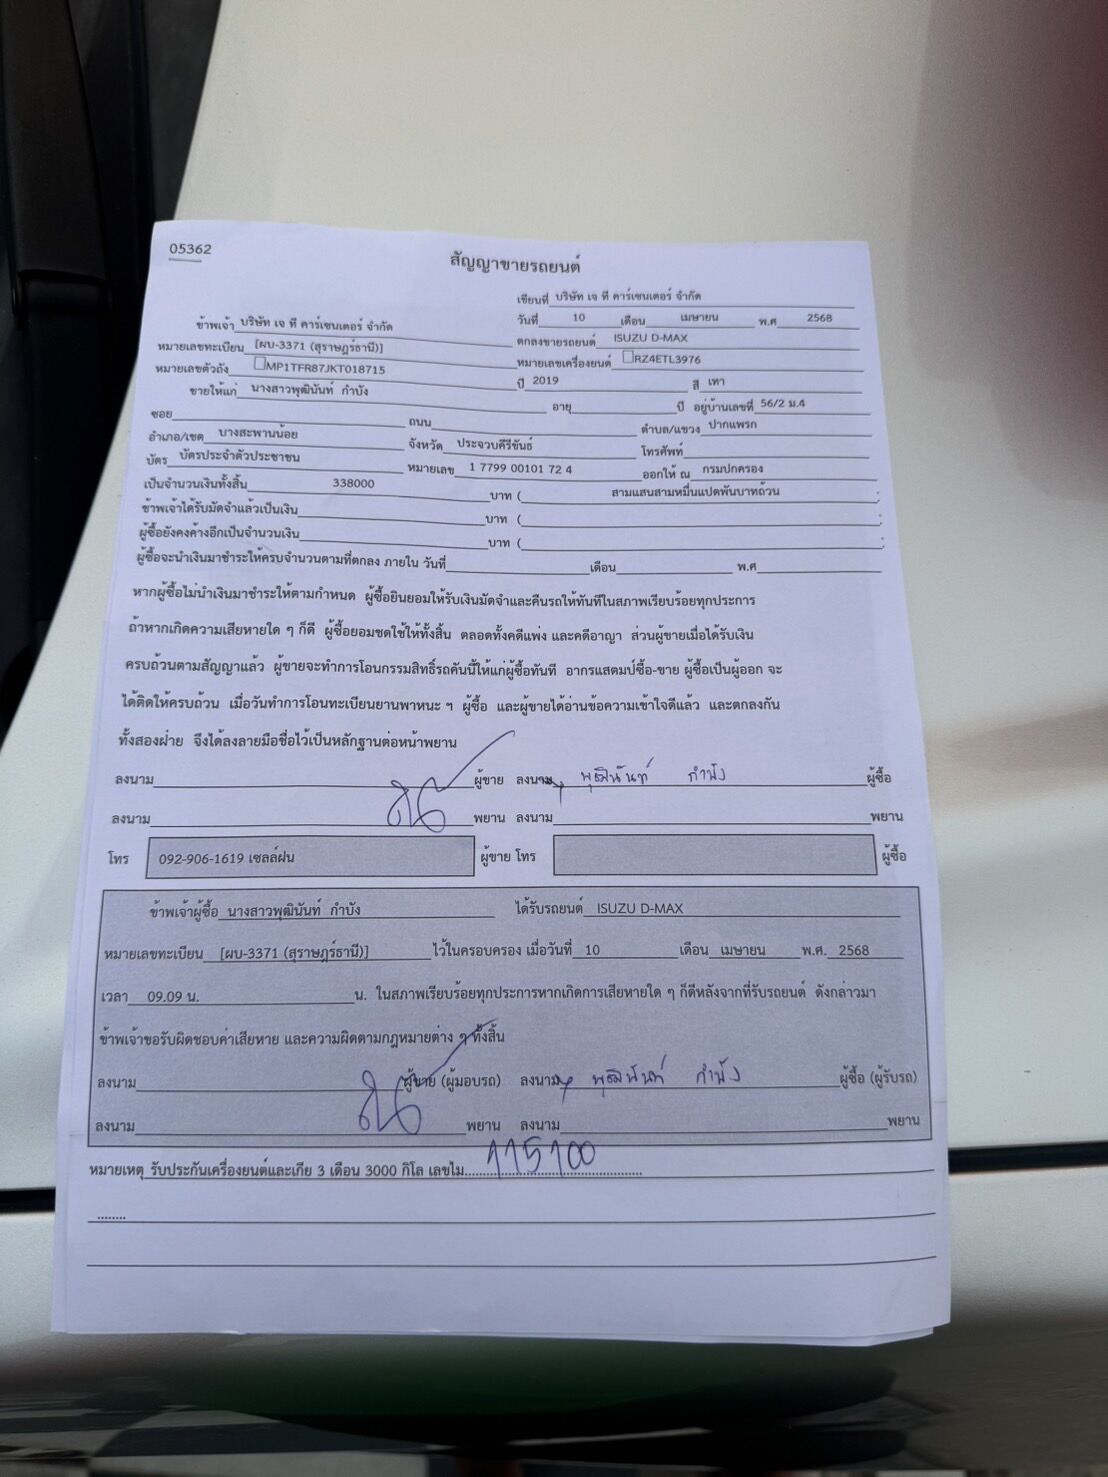 05362
สัญญาขายรถยนต์
เขียนที่ บริษัท เจ ที คาร์เซนเตอร์ จำกัด
วันที่ 10 เดือน เมษายน พ.ศ 2568
ข้าพเจ้า บริษัท เจ ที คาร์เซนเตอร์ จำกัด ตกลงขายรถยนต์ ISUZU D-MAX
หมายเลขทะเบียน [ผบ-3371 (สุราษฎร์ธานี)] หมายเลขเครื่องยนต์ RZ4ETL3976
หมายเลขตัวถัง MP1TFR87JKT018715 ปี 2019 สี เทา
ขายให้แก่ นางสาวพุฒินันท์ กำบัง อายุ ปี อยู่บ้านเลขที่ 56/2 ม.4
ซอย ถนน ตำบล/แขวง ปากแพรก
อำเภอ/เขต บางสะพานน้อย จังหวัด ประจวบคีรีขันธ์ โทรศัพท์
บัตร บัตรประจำตัวประชาชน หมายเลข 1 7799 00101 72 4 ออกให้ ณ กรมปกครอง
เป็นจำนวนเงินทั้งสิ้น 338000 บาท ( สามแสนสามหมื่นแปดพันบาทถ้วน
ข้าพเจ้าได้รับมัดจำแล้วเป็นเงิน บาท (
ผู้ซื้อยังคงค้างอีกเป็นจำนวนเงิน บาท (
ผู้ซื้อจะนำเงินมาชำระให้ครบจำนวนตามที่ตกลง ภายใน วันที่ เดือน พ.ศ
หากผู้ซื้อไม่นำเงินมาชำระให้ตามกำหนด ผู้ซื้อยินยอมให้รับเงินมัดจำและคืนรถให้ทันทีในสภาพเรียบร้อยทุกประการ
ถ้าหากเกิดความเสียหายใด ๆ ก็ดี ผู้ซื้อยอมชดใช้ให้ทั้งสิ้น ตลอดทั้งคดีแพ่ง และคดีอาญา ส่วนผู้ขายเมื่อได้รับเงิน
ครบถ้วนตามสัญญาแล้ว ผู้ขายจะทำการโอนกรรมสิทธิ์รถคันนี้ให้แก่ผู้ซื้อทันที อากรแสตมป์ซื้อ-ขาย ผู้ซื้อเป็นผู้ออก จะ
ได้ติดให้ครบถ้วน เมื่อวันทำการโอนทะเบียนยานพาหนะ ฯ ผู้ซื้อ และผู้ขายได้อ่านข้อความเข้าใจดีแล้ว และตกลงกัน
ทั้งสองฝ่าย จึงได้ลงลายมือชื่อไว้เป็นหลักฐานต่อหน้าพยาน
ลงนาม ผู้ขาย ลงนาม พุฒินันท์ กำบัง ผู้ซื้อ
ลงนาม พยาน ลงนาม พยาน
โทร 092-906-1619 เซลล์ฝน ผู้ขาย โทร ผู้ซื้อ
ข้าพเจ้าผู้ซื้อ นางสาวพุฒินันท์ กำบัง ได้รับรถยนต์ ISUZU D-MAX
หมายเลขทะเบียน [ผบ-3371 (สุราษฎร์ธานี)] ไว้ในครอบครอง เมื่อวันที่ 10 เดือน เมษายน พ.ศ. 2568
เวลา 09.09 น. น. ในสภาพเรียบร้อยทุกประการหากเกิดการเสียหายใด ๆ ก็ดีหลังจากที่รับรถยนต์ ดังกล่าวมา
ข้าพเจ้าขอรับผิดชอบค่าเสียหาย และความผิดตามกฎหมายต่าง ๆ ทั้งสิ้น
ลงนาม ผู้ขาย (ผู้มอบรถ) ลงนาม พุฒินันท์ กำบัง ผู้ซื้อ (ผู้รับรถ)
ลงนาม พยาน ลงนาม พยาน
หมายเหตุ รับประกันเครื่องยนต์และเกีย 3 เดือน 3000 กิโล เลขไม...... 115100
........